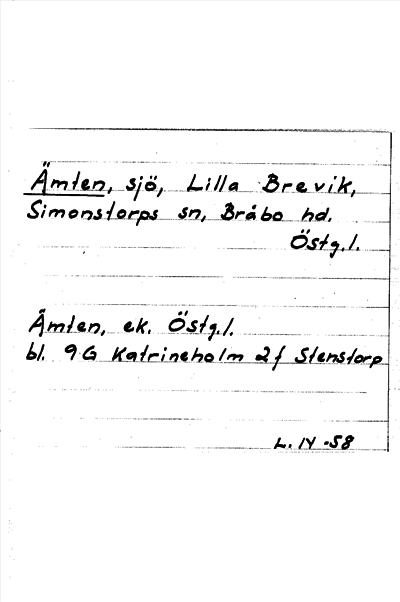 Ämten, sjö, Lilla Brevik,
Simonstorps sn, Bråbo hd.
Östg.l.
Ämten, ek. Östg.l.
bl. 9G Katrineholm 2f Stenstorp
L. IY -58